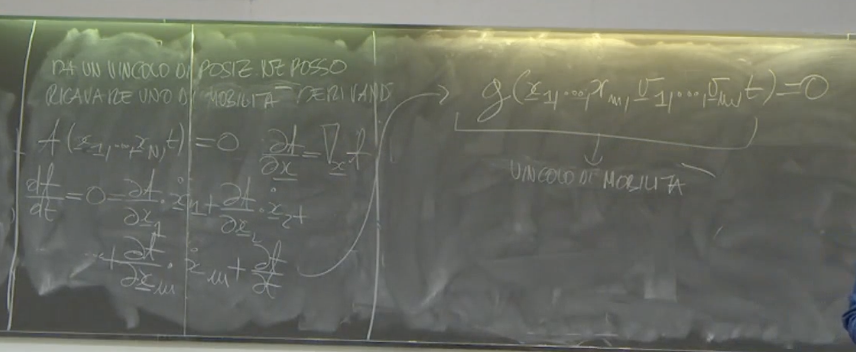 DA UN VINCOLO DI POSIZ. NE POSSO
RICAVARE UNO DI MOBILITÀ DERIVANDO
f(x₁,...,x_N,t)=0   ∂f/∂x = ∇ₓf
df/dt = 0 = ∂f/∂x₁ · ẋ₁ + ∂f/∂x₂ · ẋ₂ +
...+ ∂f/∂x_N · ẋ_N + ∂f/∂t
g(x₁,...,x_N,v₁,...,v_N,t)=0
VINCOLO DI MOBILITÀ